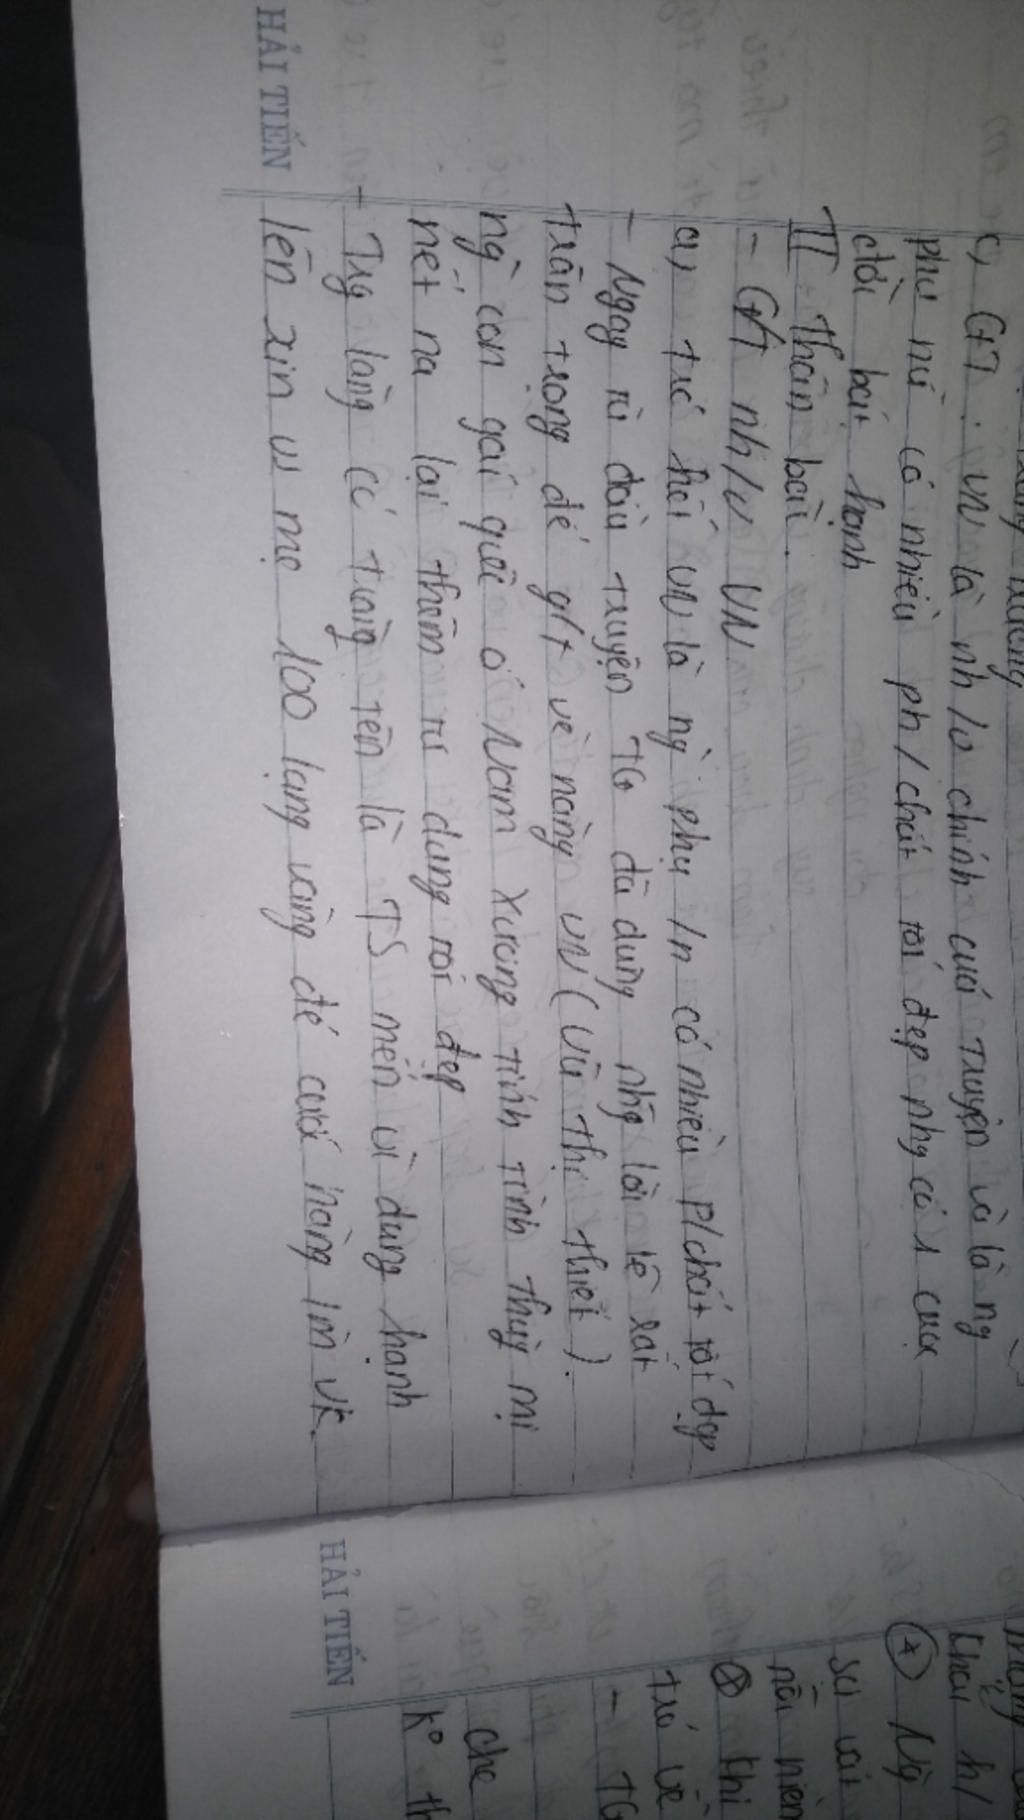 c, GT: VN là nh/v chính của truyện và là ng
phụ nữ có nhiều ph/chất tốt đẹp nhg có 1 cuộc
đời bất hạnh
II Thân bài.
- GT nh/v VN
a, trc hết VN là ng phụ /n có nhiều p/chất tốt đẹp
- Ngay từ đầu truyện TG đã dùng nhg lời lẽ rất
trân trọng để g/t về nàng VN (Vũ Thị Thiết).
ng con gái quê ở Nam Xương tính tình thuỳ mị
nết na lại thêm tư dung tốt đẹp
+ Trg làng có tràng tên là TS mến vì dung hạnh
lên xin vs mẹ 100 lạng vàng để cưới nàng lm vk.
HẢI TIẾN
HẢI TIẾN
* Ng
⊗ khi
trở về
- TG
che
k° th